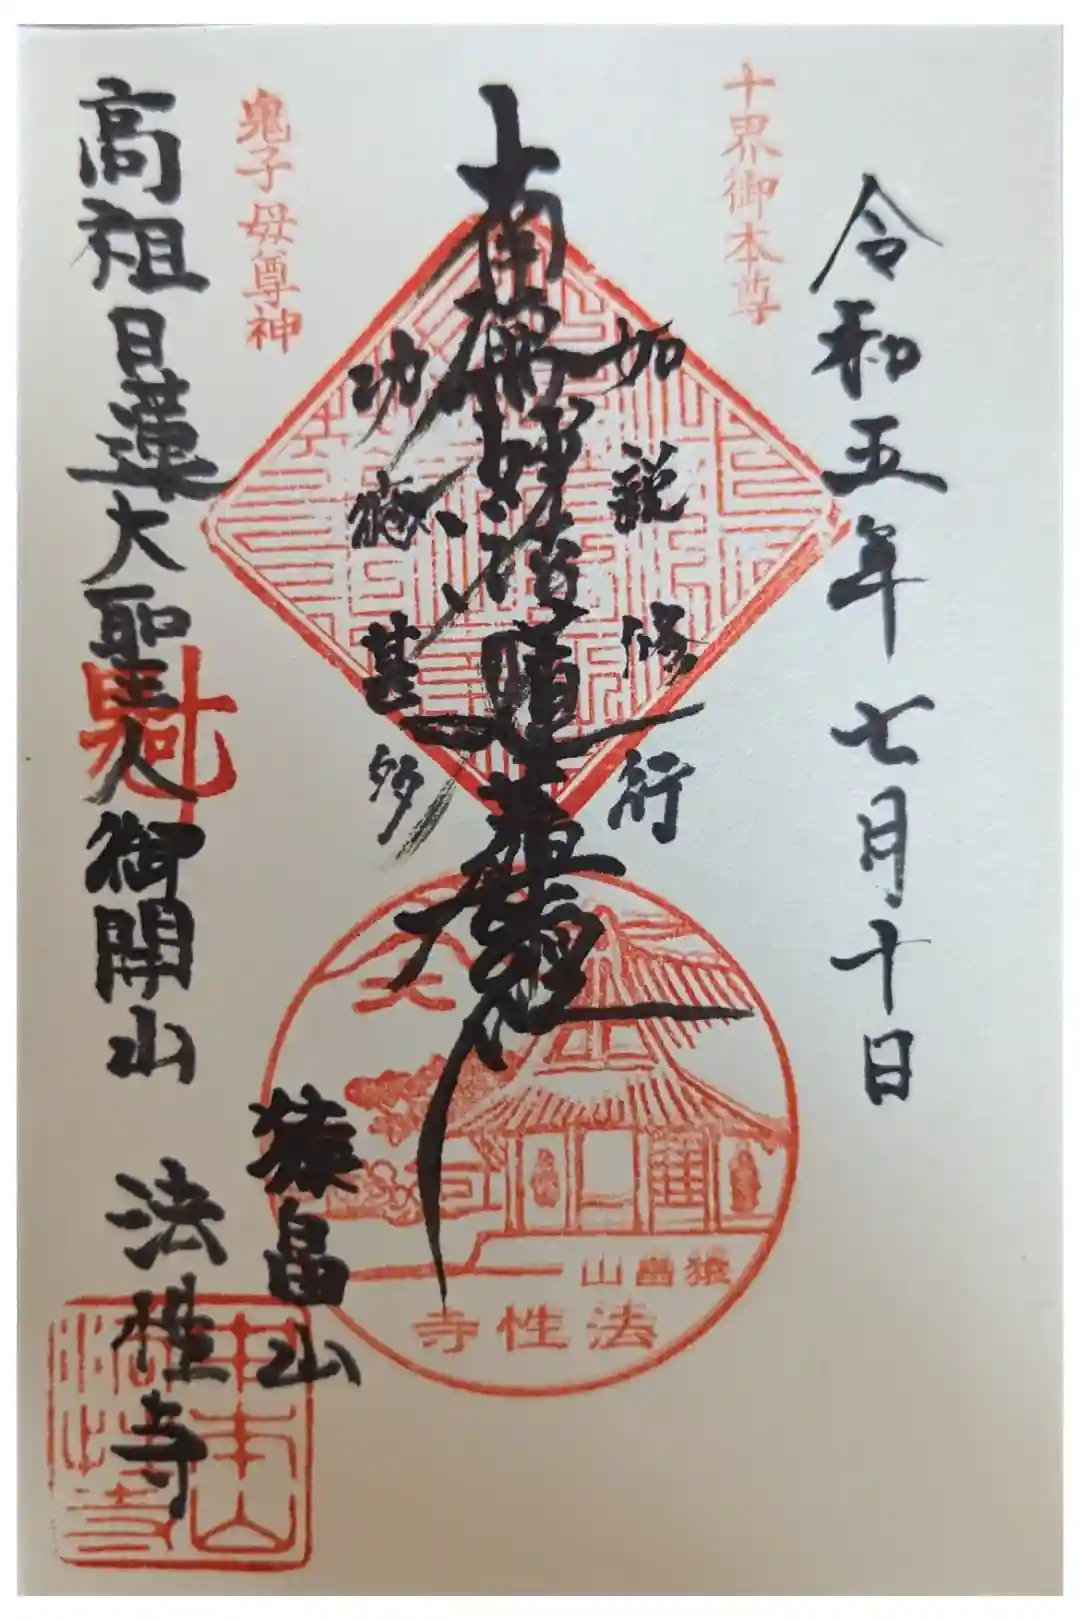 令和五年七月十日
十界御本尊
如説修行
南無妙法蓮華経
功施甚多
鬼子母尊神
高祖日蓮大聖人御開山
猿畠山
法性寺
猿畠山
法性寺
本山